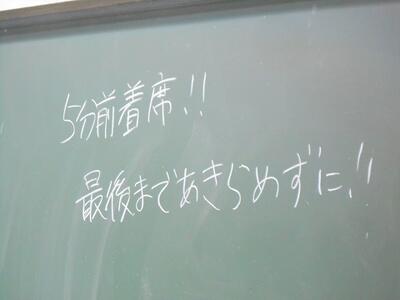 5分前着席!!
最後まであきらめずに!!